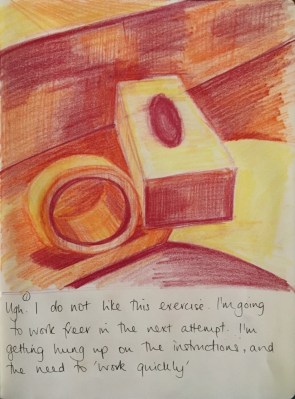 Ugh. I do not like this exercise. I'm going
to work freer in the next attempt. I'm
getting hung up on the instructions, and
the need to 'work quickly'